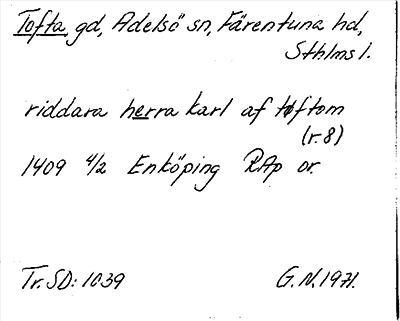 Tofta, gd, Adelsö sn, Färentuna hd,
Sthlms l.
riddara herra karl af tøftom
(r. 8)
1409 4/2 Enköping RAp or.
Tr. SD: 1039 G. N. 1971.